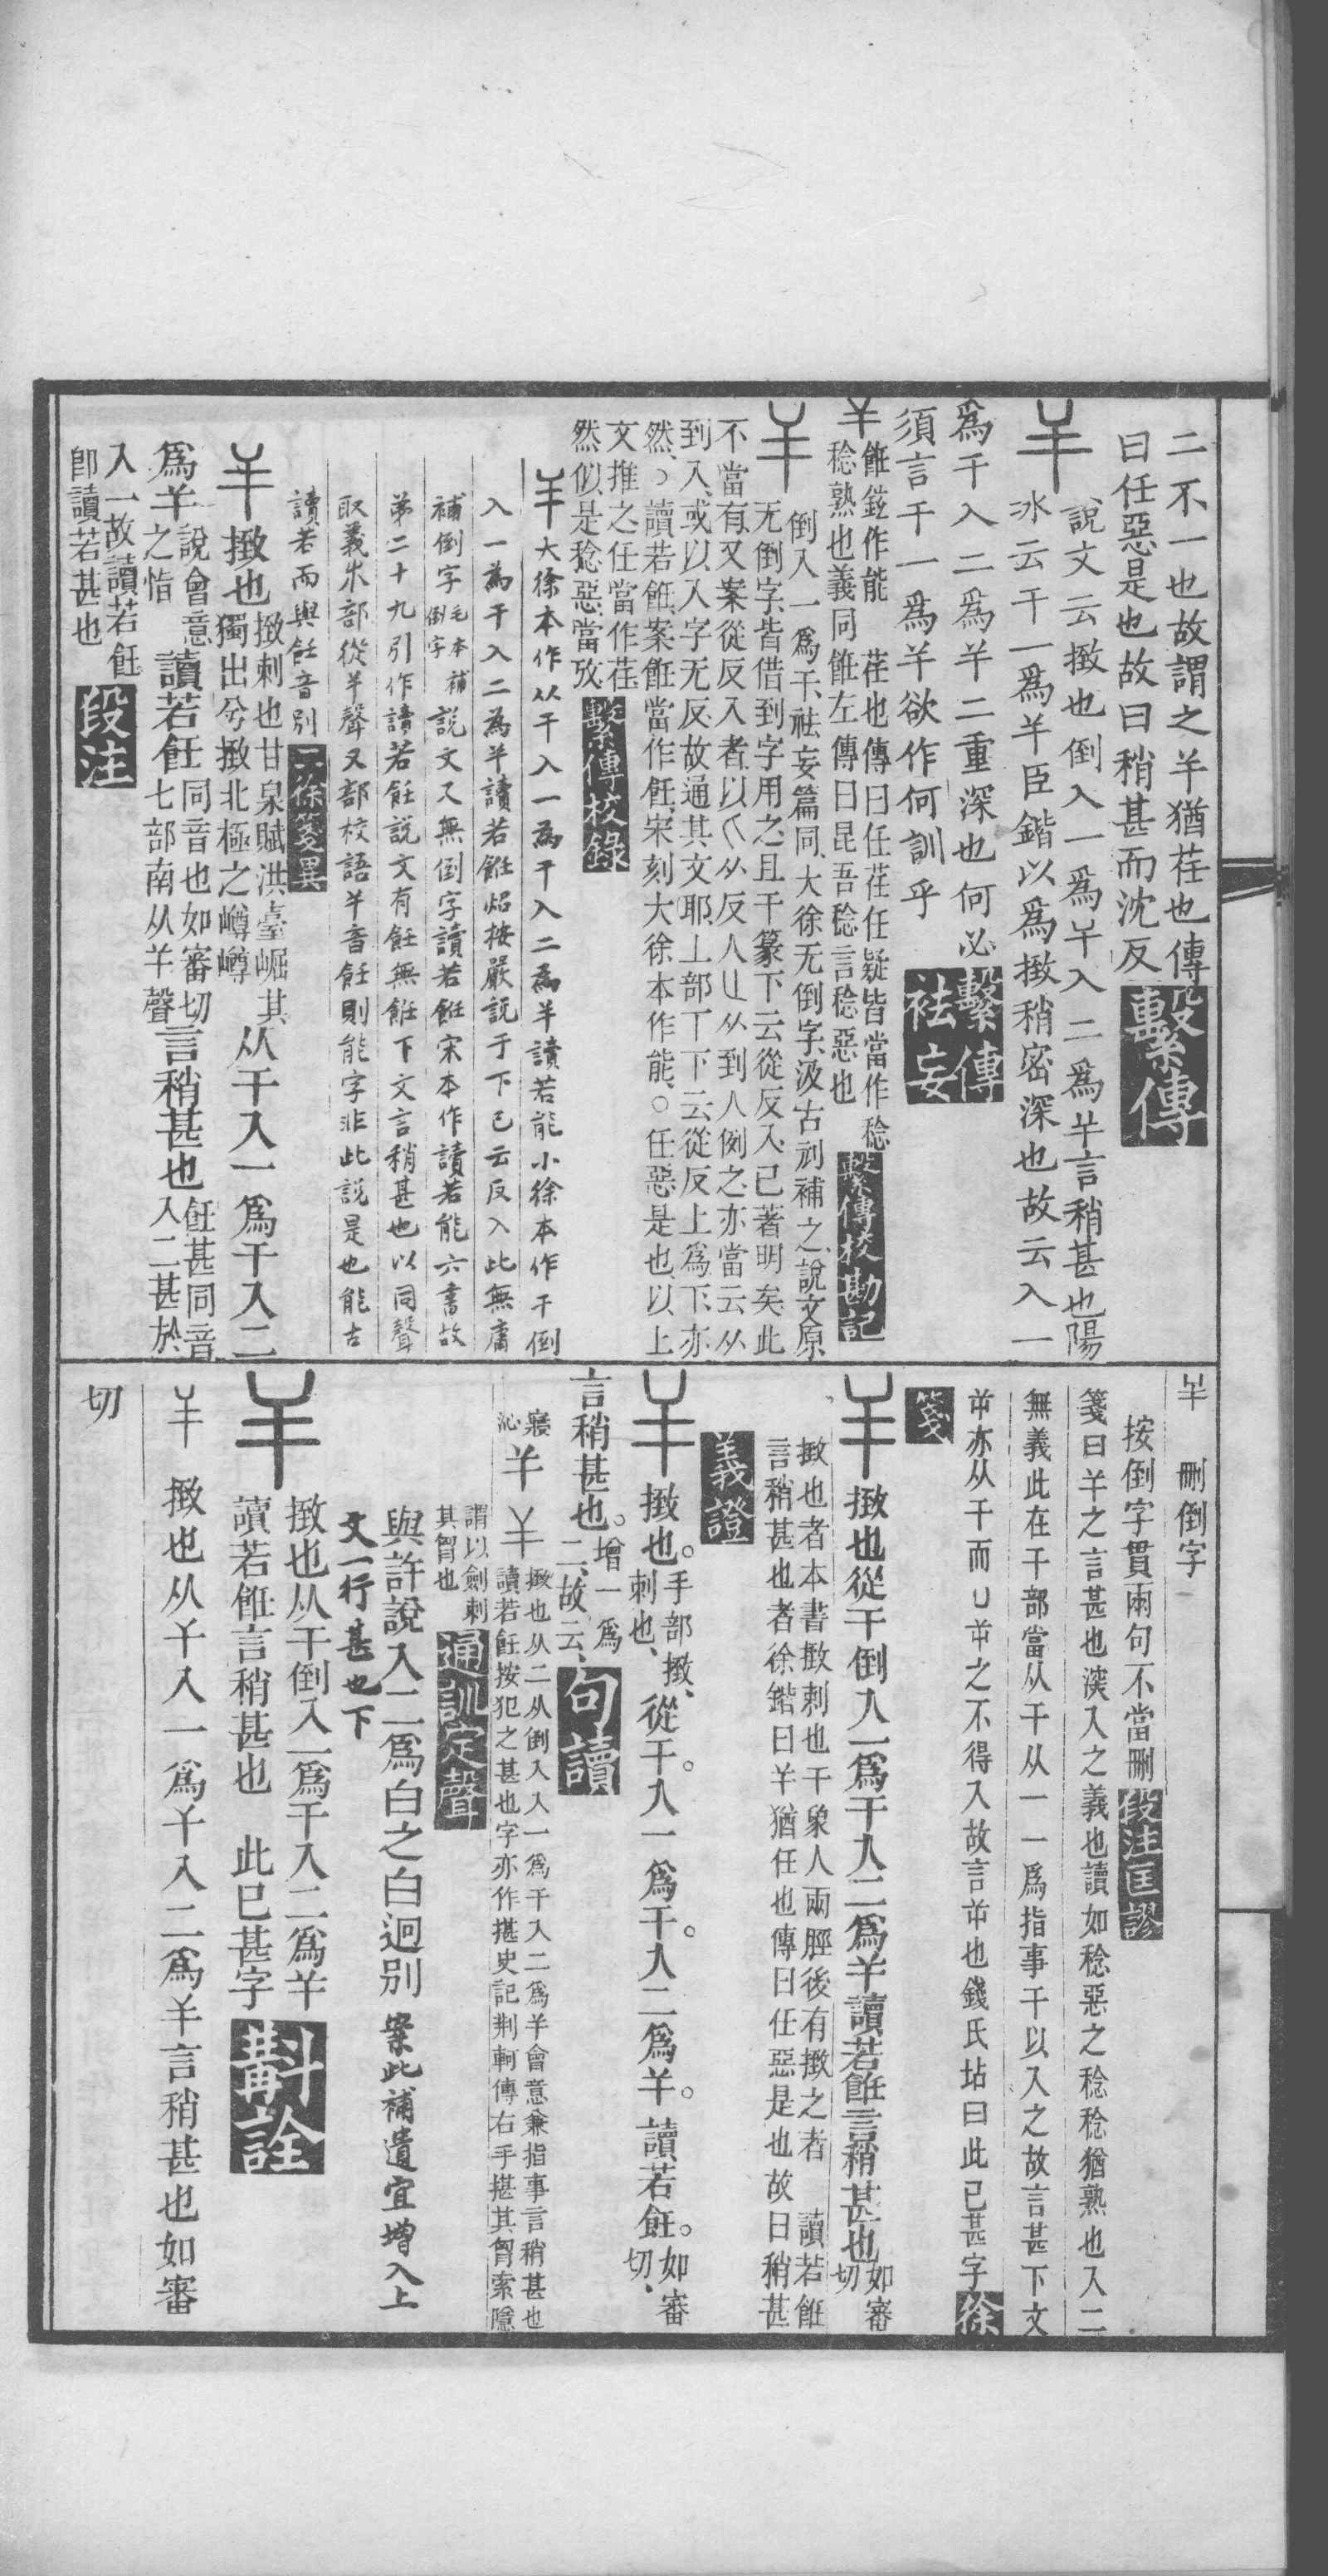 二不一也故謂之𢆉猶荏也傳
曰任惡是也故曰稍甚而沈反
繫傳
𢆉
說文云撠也倒入一爲干入二爲𢆉言稍甚也陽
冰云干一爲𢆉臣鍇以爲撠稍密深也故云入一
爲干入二爲𢆉二重深也何必
須言干一爲𢆉欲作何訓乎
繫傳
袪妄
𢆉
飪鈘作能　荏也傳曰任荏任疑皆當作稔
稔熟也義同飪左傳曰昆吾稔言稔惡也
繫傳校勘記
𢆉
倒入一爲干袪妄篇同大徐无倒字汲古刓補之說文原
无倒字皆借到字用之且干篆下云從反入已著明矣此
不當有又案從反入者以从反人从到人例之亦當云从
到入或以入字无反故通其文耶丄部丅下云從反上爲下亦
然讀若飪案飪當作飪宋刻大徐本作能○任惡是也以上
文推之任當作荏
然似是稔惡當攷
繫傳校錄
𢆉大徐本作从干入一爲干入二爲𢆉讀若能小徐本作干倒
入一爲干入二爲𢆉讀若飪炤按嚴說干下已云反入此無庸
補倒字毛本補倒字說文又無倒字讀若飪宋本作讀若能六書故
弟二十九引作讀若飪說文有飪無飪下文言稍甚也以同聲
取義米部從𢆉聲又部校語𢆉音飪則能字非此說是也能古
讀若而與飪音別
二徐箋異
𢆉
撠也
撠刺也甘泉賦洪臺崛其
獨出兮撠北極之嶟嶟
从干入一爲干入二
爲𢆉
說會意
之恉
讀若飪
同音也如審切
七部南从𢆉聲
言稍甚也
飪甚同音
入二甚於
入一故讀若飪
卽讀若甚也
段注
𢆉　刪倒字
按倒字貫兩句不當刪
段注匡謬
箋曰𢆉之言甚也淡入之義也讀如稔惡之稔稔猶熟也入二
無義此在干部當从干从一一爲指事干以入之故言甚下文
屰亦从干而凵屰之不得入故言屰也錢氏坫曰此已甚字
徐
箋
𢆉
撠也從干倒入一爲干入二爲𢆉讀若飪言稍甚也
如審
切
撠也者本書撠刺也干象人兩脛後有撠之者　讀若飪
言稍甚也者徐鍇曰𢆉猶任也傳曰任惡是也故曰稍甚
義證
𢆉
撠也。
手部撠、
刺也、
從干。入一爲干。入二爲𢆉。讀若飪。
如審
切、
言稍甚也。
增一爲
二、故云、
句讀
寢
沁
𢆉
𢆉
撠也从二从倒入入一爲干入二爲𢆉會意兼指事言稍甚也
讀若飪按犯之甚也字亦作揕史記荆軻傳右手揕其胷索隱
謂以劍刺
其胷也
通訓定聲
與許說入二爲白之白迥別　案此補遺宜增入上
文一行甚也下
𢆉
撠也从干倒入一爲干入二爲𢆉
讀若飪言稍甚也　此已甚字
斠詮
𢆉　撠也从干入一爲干入二爲𢆉言稍甚也如審
切